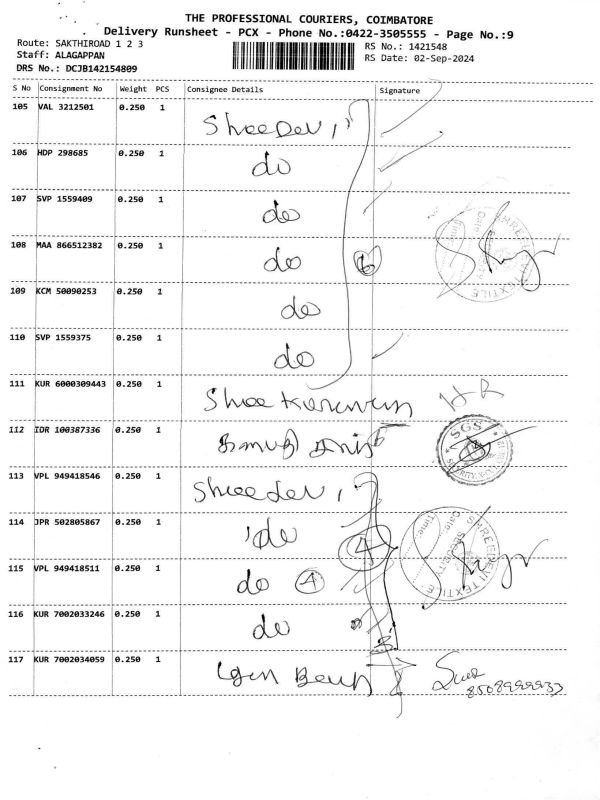 THE PROFESSIONAL COURIERS, COIMBATORE
Delivery Runsheet - PCX - Phone No.:0422-3505555 - Page No.:9
Route: SAKTHIROAD 1 2 3
RS No.: 1421548
Staff: ALAGAPPAN
RS Date: 02-Sep-2024
DRS No.: DCJB142154809
S No Consignment No Weight PCS Consignee Details Signature
105 VAL 3212501 0.250 1 ShreeDevi
106 HDP 298685 0.250 1 do
107 SVP 1559409 0.250 1 do
108 MAA 866512382 0.250 1 do 6
SHREEDEVI TEXTILE
SECURITY
Date:
Time:
109 KCM 50090253 0.250 1 do
110 SVP 1559375 0.250 1 do
111 KUR 6000309443 0.250 1 Shree
112 IDR 100387336 0.250 1
SGS
113 VPL 949418546 0.250 1 Shreedevi
114 JPR 502805867 0.250 1 do 4
SHREEDEVI TEXTILE
SECURITY
Date:
Time:
115 VPL 949418511 0.250 1 do 4
116 KUR 7002033246 0.250 1 do
117 KUR 7002034059 0.250 1